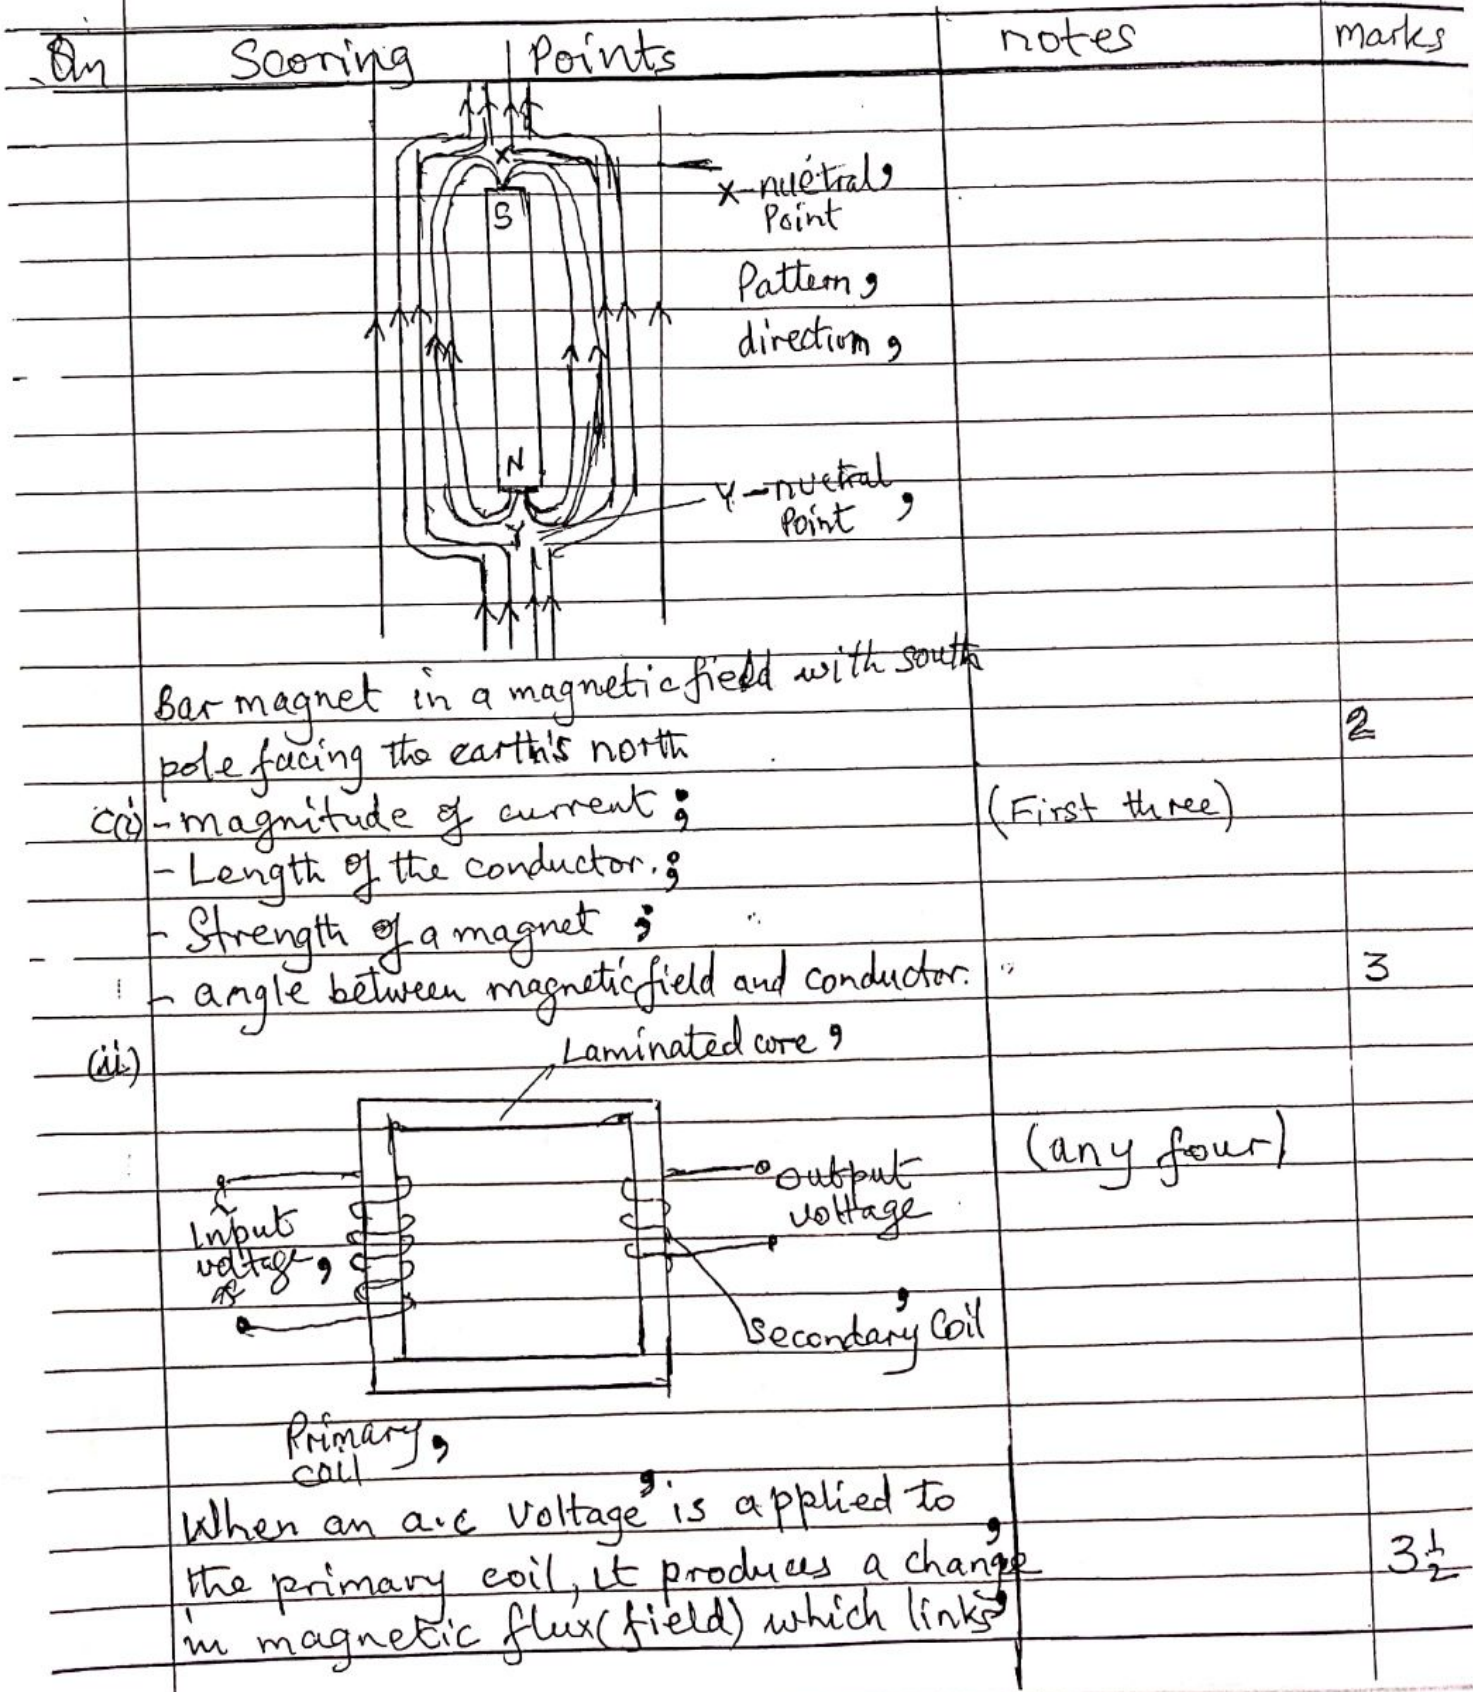 Qn Scoring Points notes marks
X
S
X-nuetral,
Point
Pattern,
direction,
N
Y
Y-nuetral,
Point
Bar magnet in a magnetic field with south
pole facing the earth's north
2
c(i) - magnitude of current ;
(First three)
- Length of the conductor. ;
- Strength of a magnet ;
- angle between magnetic field and conductor.
3
(ii)
Laminated core,
(any four)
Input
voltage,
output
voltage
,
Secondary Coil
Primary,
coil
When an a.c voltage, is applied to
the primary coil, it produces a change,
3 1/2
in magnetic flux (field) which links,